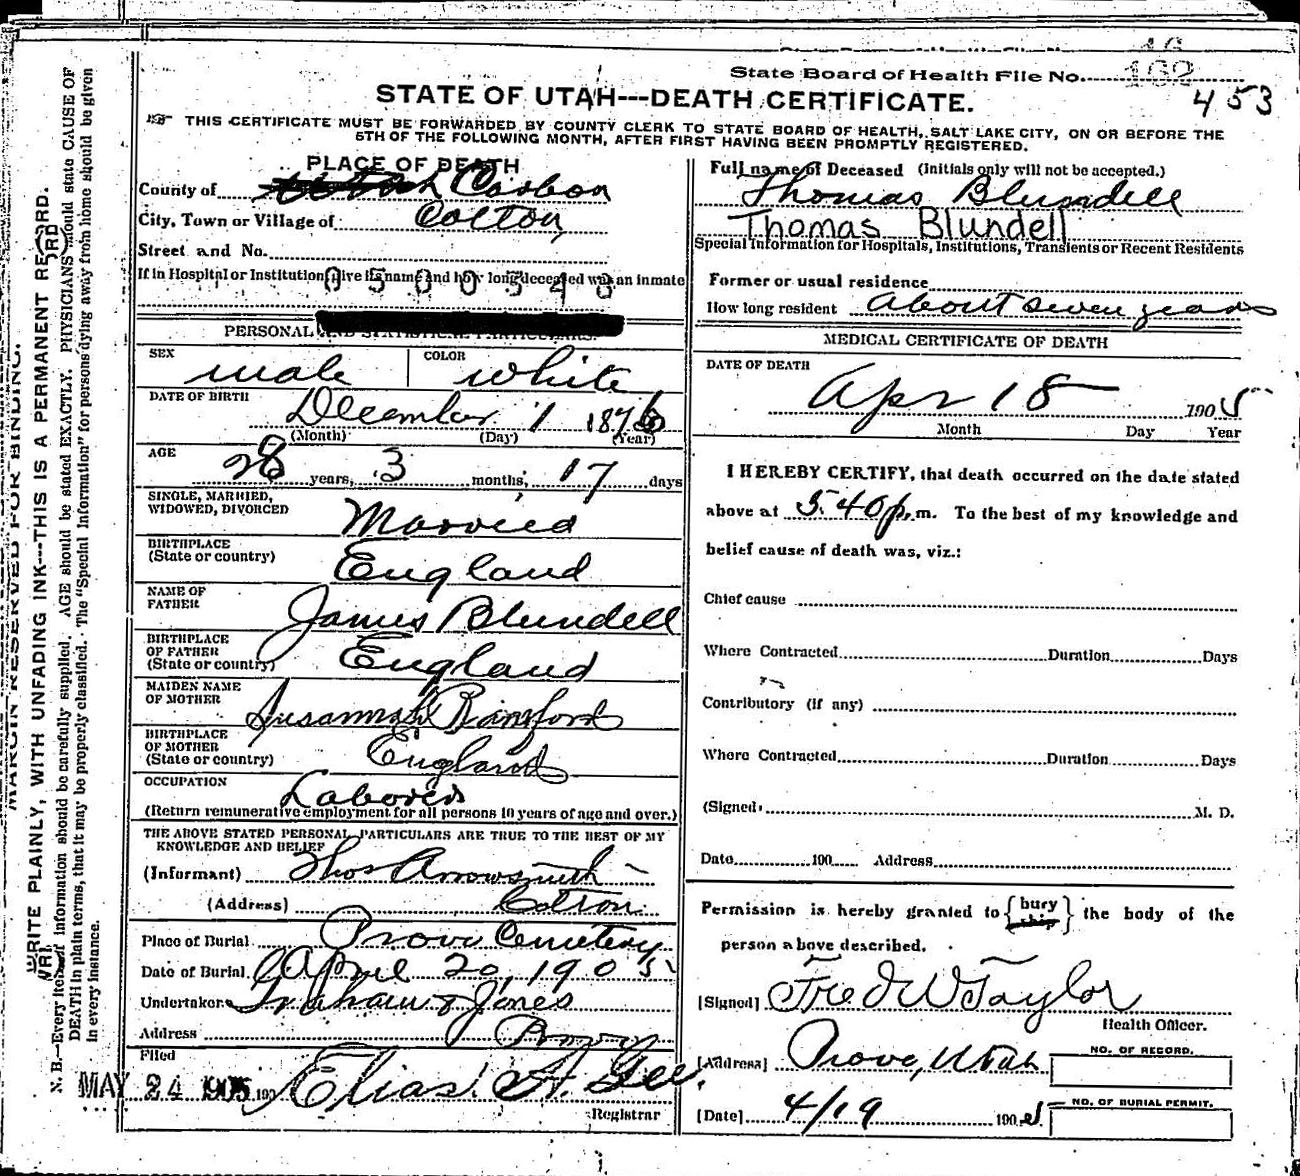 State Board of Health File No.
162
453
STATE OF UTAH---DEATH CERTIFICATE.
THIS CERTIFICATE MUST BE FORWARDED BY COUNTY CLERK TO STATE BOARD OF HEALTH, SALT LAKE CITY, ON OR BEFORE THE
5TH OF THE FOLLOWING MONTH, AFTER FIRST HAVING BEEN PROMPTLY REGISTERED.
MARGIN RESERVED FOR BINDING.
WRITE PLAINLY, WITH UNFADING INK---THIS IS A PERMANENT RECORD.
N. B.--Every item of information should be carefully supplied. AGE should be stated EXACTLY. PHYSICIANS should state CAUSE OF
DEATH in plain terms, that it may be properly classified. The "Special Information" for persons dying away from home should be given
in every instance.
PLACE OF DEATH
County of Utah Carbon
City, Town or Village of Colton
Street and No.
If in Hospital or Institution, give its name and how long deceased was an inmate
0500548
PERSONAL AND STATISTICAL PARTICULARS.
SEX male COLOR white
DATE OF BIRTH December 1 1876
(Month) (Day) (Year)
AGE 28 years, 3 months, 17 days
SINGLE, MARRIED,
WIDOWED, DIVORCED Married
BIRTHPLACE
(State or country) England
NAME OF
FATHER James Blundell
BIRTHPLACE
OF FATHER
(State or country) England
MAIDEN NAME
OF MOTHER Susannah
BIRTHPLACE
OF MOTHER
(State or country) England
OCCUPATION Laborer
(Return remunerative employment for all persons 10 years of age and over.)
THE ABOVE STATED PERSONAL PARTICULARS ARE TRUE TO THE BEST OF MY
KNOWLEDGE AND BELIEF
(Informant) Thos Arrowsmith
(Address) Colton
Place of Burial Provo Cemetery
Date of Burial April 20, 1905
Undertaker Graham & Jones
Address Provo
Filed
MAY 24 1905 190 Elias A. Gee.
Registrar
Full name of Deceased (Initials only will not be accepted.)
Thomas Blundell
Thomas Blundell
Special Information for Hospitals, Institutions, Transients or Recent Residents
Former or usual residence
How long resident about seven years
MEDICAL CERTIFICATE OF DEATH
DATE OF DEATH
Apr 18 1905
Month Day Year
I HEREBY CERTIFY, that death occurred on the date stated
above at 5.40 p.m. To the best of my knowledge and
belief cause of death was, viz.:
Chief cause
Where Contracted Duration Days
Contributory (if any)
Where Contracted Duration Days
(Signed) M. D.
Date 190 Address
Permission is hereby granted to {bury ship} the body of the
person above described.
[Signed] Fred W Taylor
Health Officer.
[Address] Provo, Utah
NO. OF RECORD.
[Date] 4/19 1905
NO. OF BURIAL PERMIT.